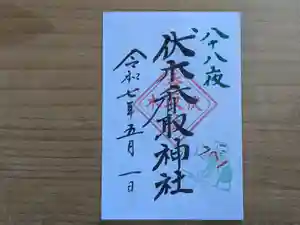 八十八夜
伏木香取神社
令和七年五月一日